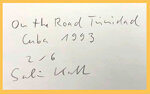 On the Road Trinidad
Cuba 1993
2/6